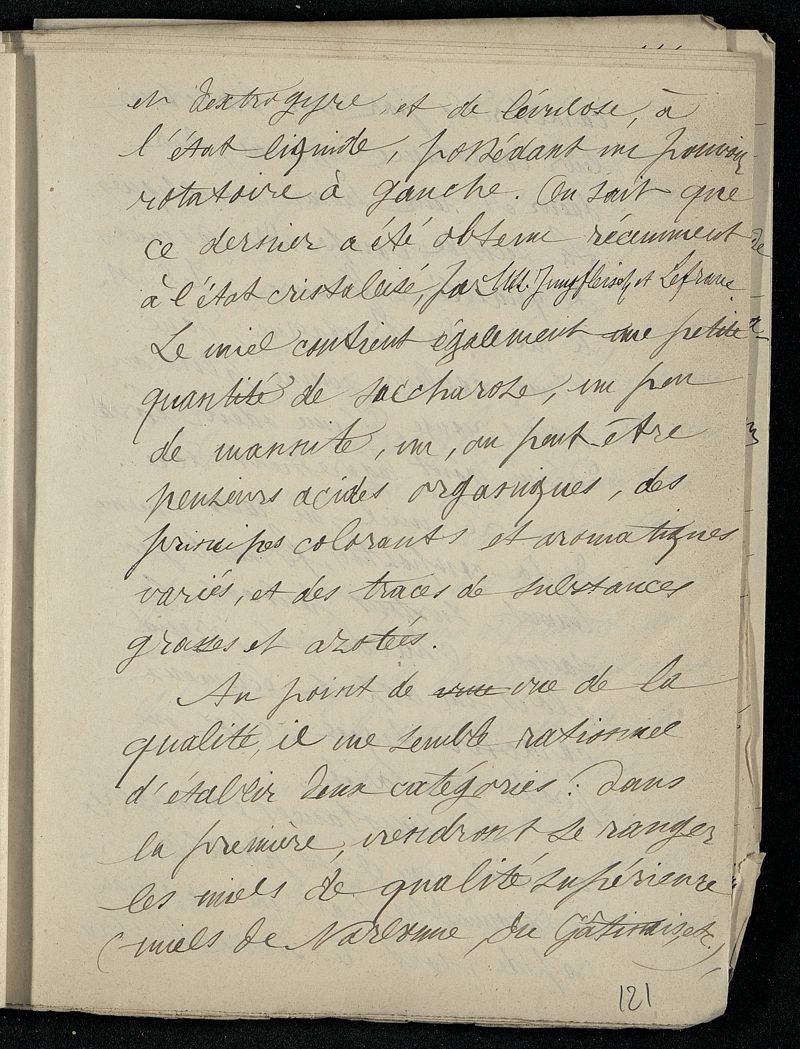 et dextrogyre, et de lévulose, à
l'état liquide, possédant un pouvoir
rotatoire à gauche. On sait que
ce dernier a été obtenu récemment
à l'état cristallisé, par MM. Jungfleisch et Lefranc.
Le miel contient également une petite
quantité de saccharose, un peu
de mannite, un, ou peut être
plusieurs acides organiques, des
principes colorants et aromatiques
variés, et des traces de substances
grasses et azotées.
Au point de vue de la
qualité, il me semble rationnel
d'établir deux catégories : dans
la première, viendront se ranger
les miels de qualité supérieure
(miels de Narbonne, du Gâtinais, etc)
121